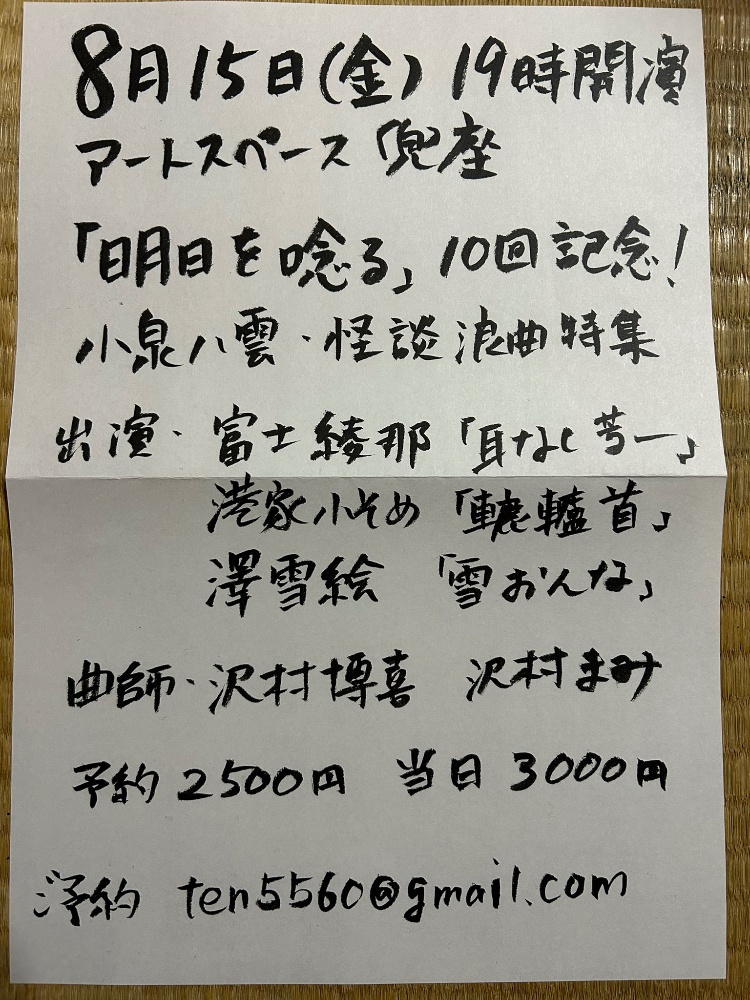 8月15日(金) 19時開演
アートスペース 兜座
「明日を唸る」10回記念!
小泉八雲・怪談浪曲特集
出演・富士綾那「耳なし芳一」
港家小そめ「轆轤首」
澤雪絵「雪おんな」
曲師・沢村博喜 沢村まみ
予約2500円 当日3000円
ご予約 ten5560@gmail.com